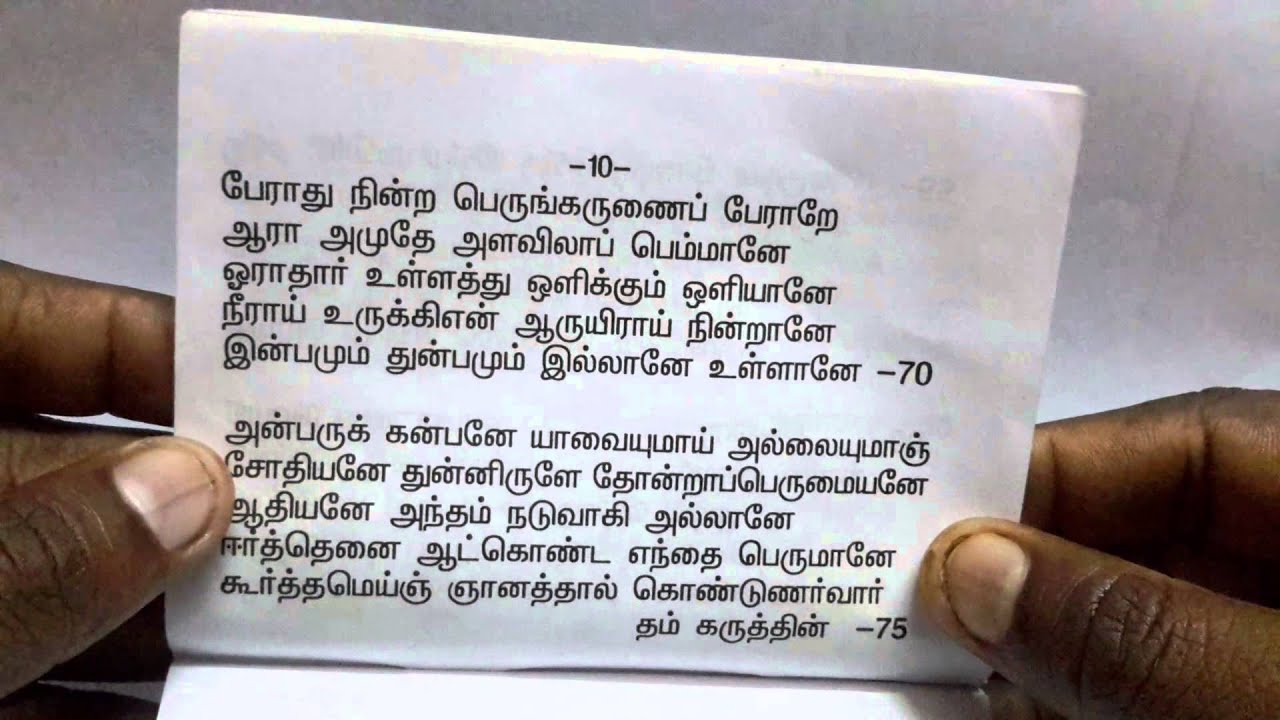 –10–
பேராது நின்ற பெருங்கருணைப் பேராறே
ஆரா அமுதே அளவிலாப் பெம்மானே
ஓராதார் உள்ளத்து ஒளிக்கும் ஒளியானே
நீராய் உருக்கிஎன் ஆருயிராய் நின்றானே
இன்பமும் துன்பமும் இல்லானே உள்ளானே –70
அன்பருக் கன்பனே யாவையுமாய் அல்லையுமாஞ்
சோதியனே துன்னிருளே தோன்றாப்பெருமையனே
ஆதியனே அந்தம் நடுவாகி அல்லானே
ஈர்த்தெனை ஆட்கொண்ட எந்தை பெருமானே
கூர்த்தமெய்ஞ் ஞானத்தால் கொண்டுணர்வார்
தம் கருத்தின் –75